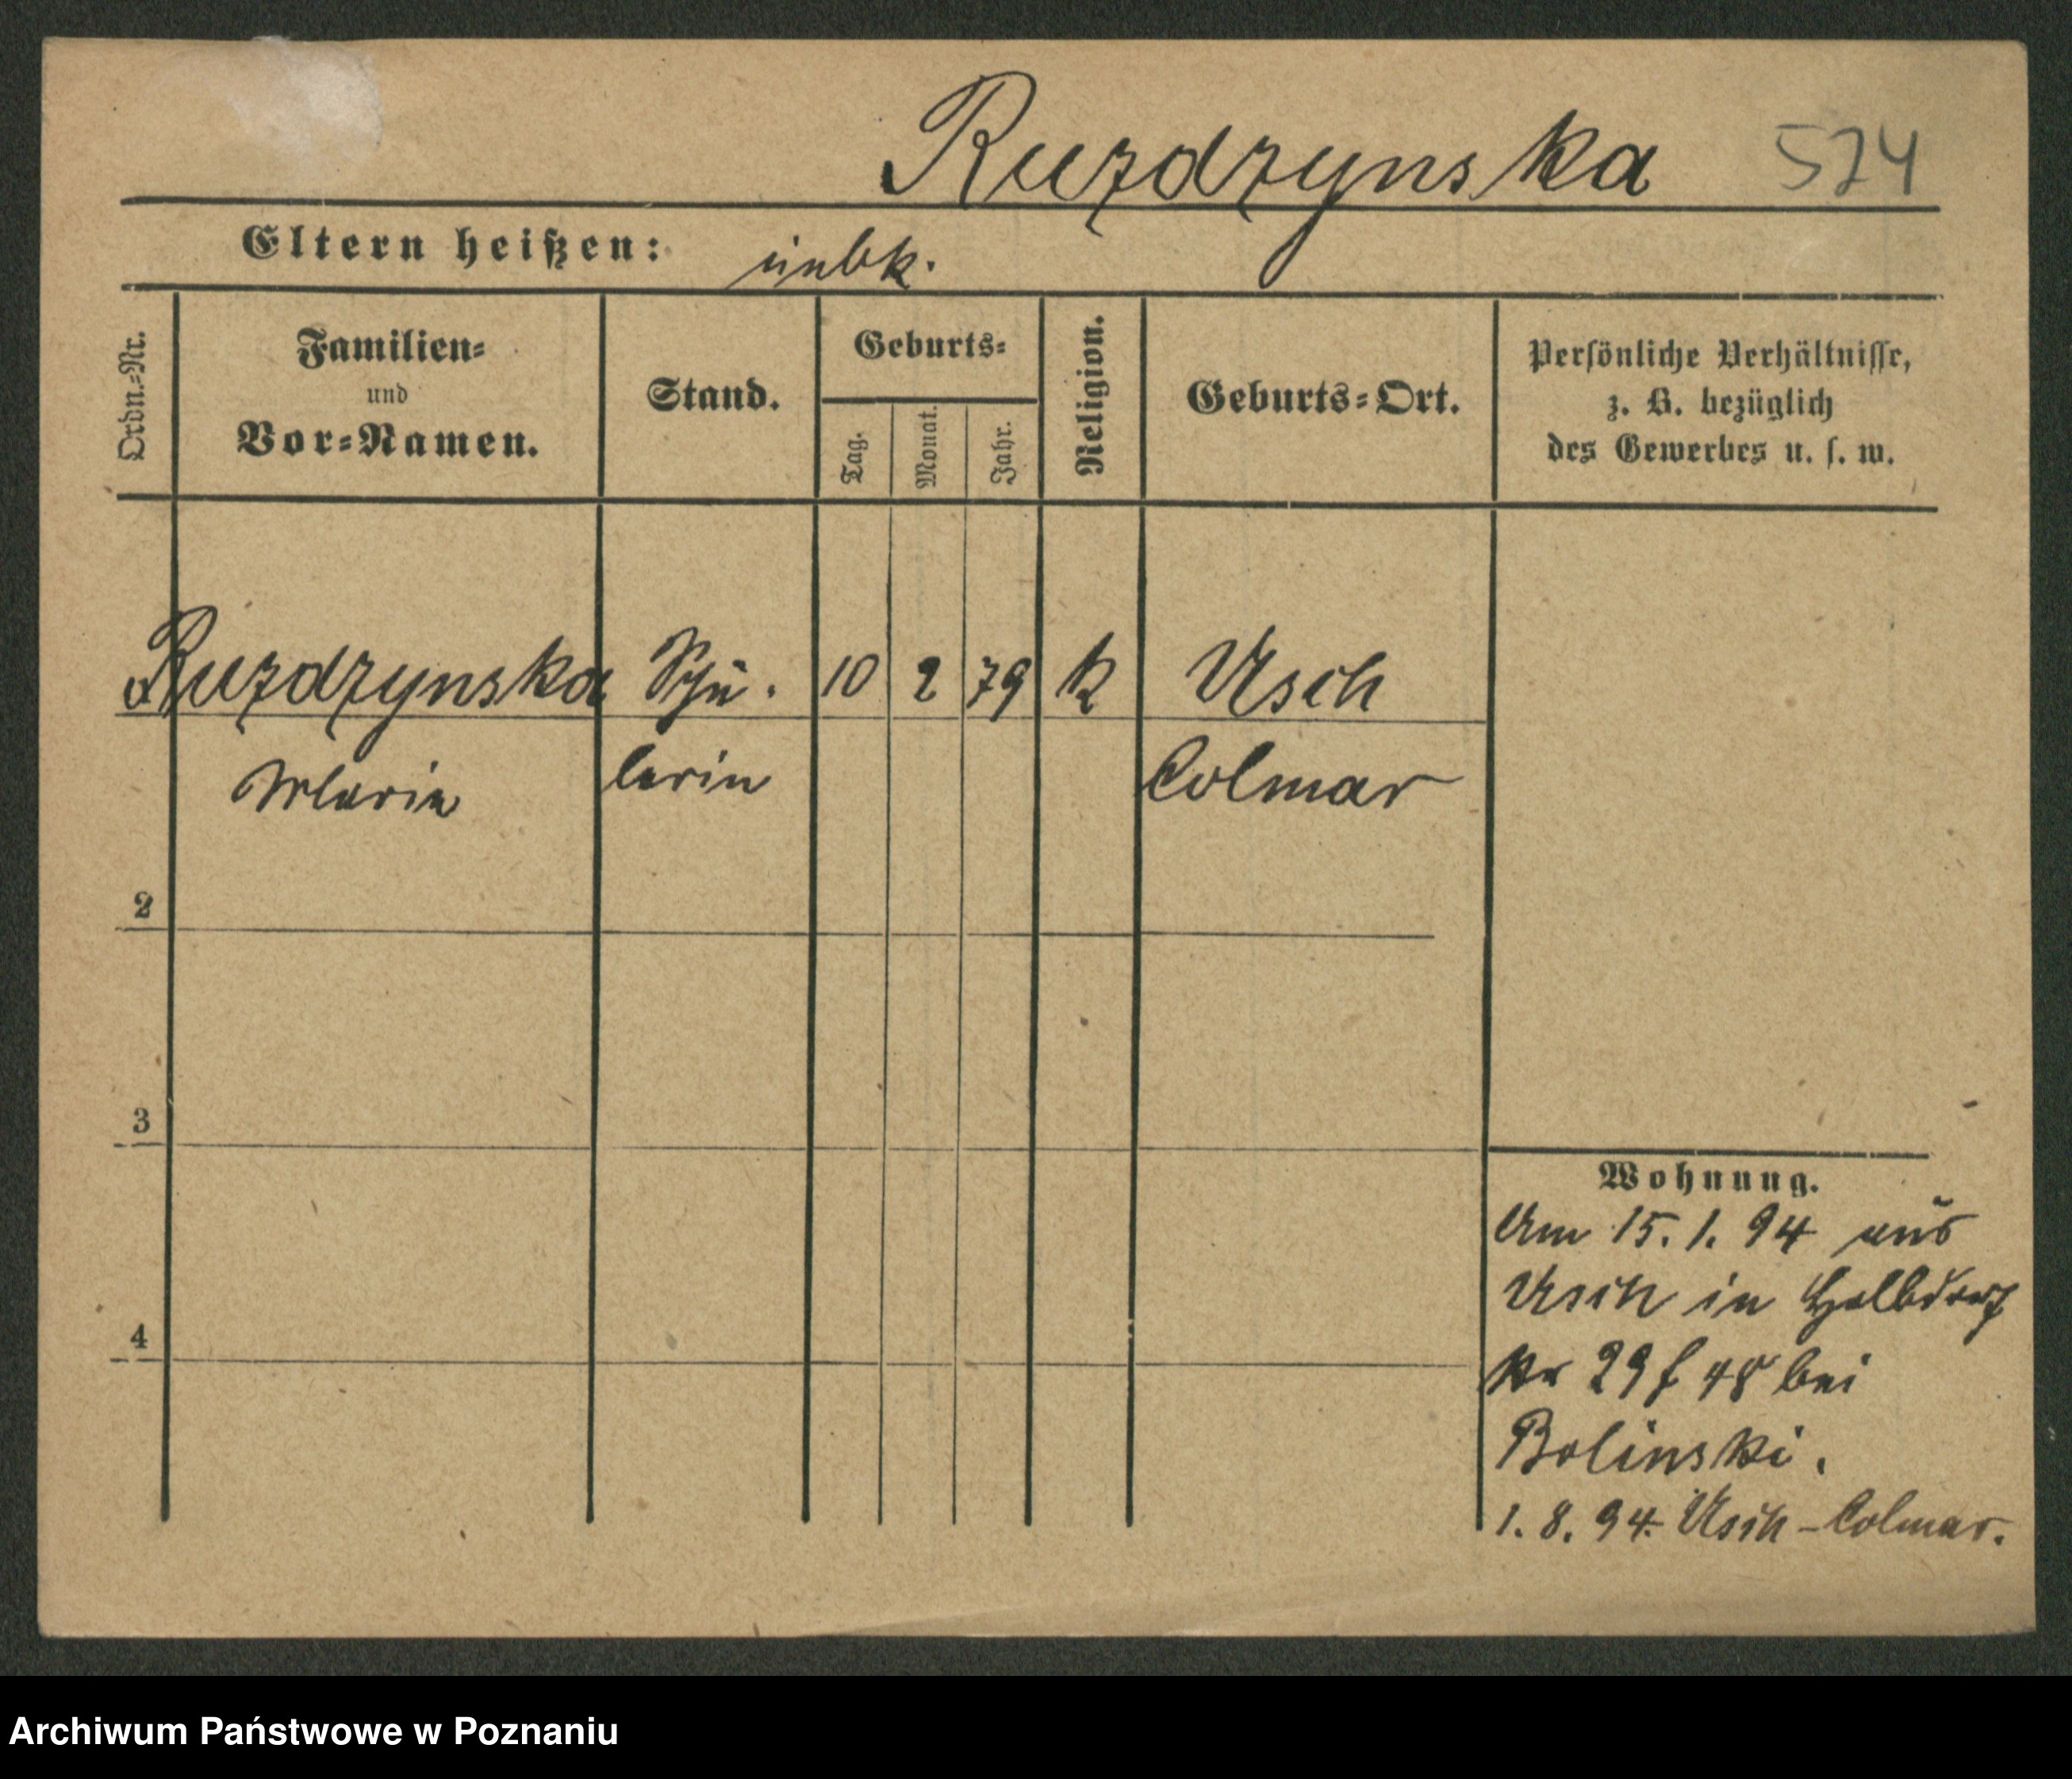 Ruzdzynska 574
Eltern heißen: unbk.
Ordn.=Nr.
Familien=
und
Vor=Namen.
Stand.
Geburts=
Tag.
Monat.
Jahr.
Religion.
Geburts=Ort.
Persönliche Verhältnisse,
z. B. bezüglich
des Gewerbes u. s. w.
Ruzdzynska Schü. 10 2 79 k Usch
Maria lerin Colmar
2
3
4
Wohnung.
Am 15. 1. 94 aus
Usch in Halbdorf
Nr 29 f 48 bei
Bolinski.
1. 8. 94. Usch - Colmar.
Archiwum Państwowe w Poznaniu